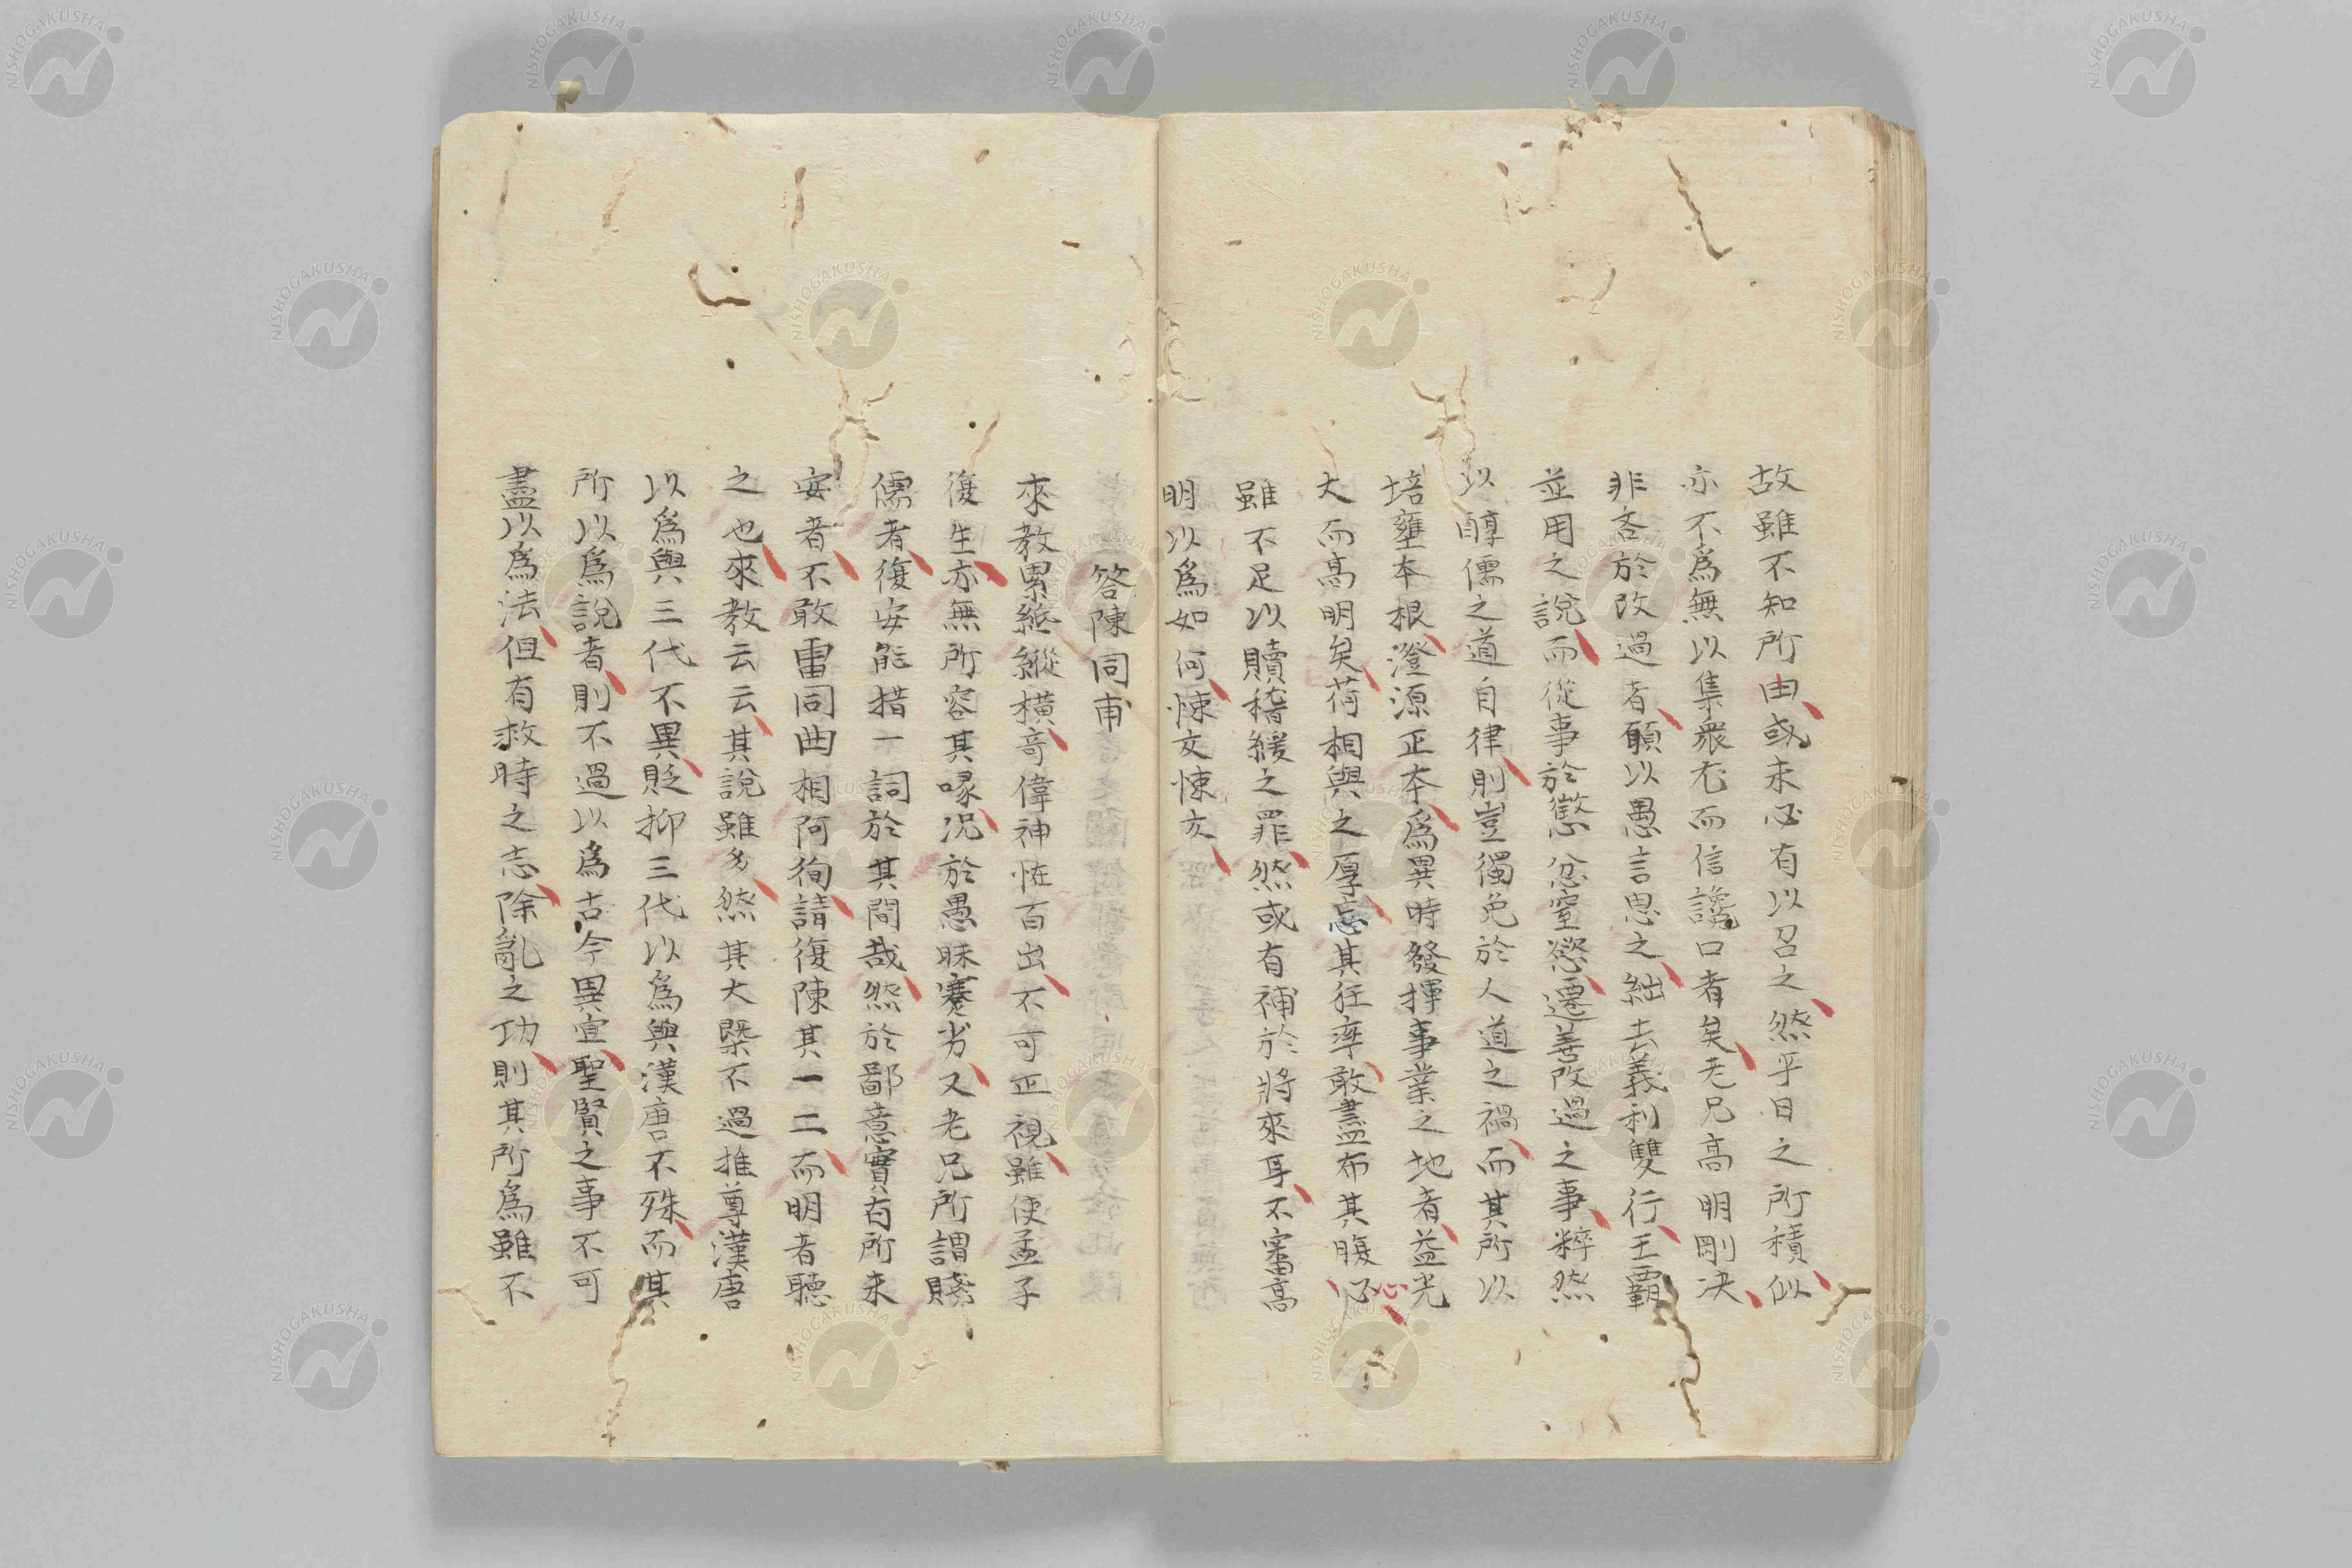 故雖不知所由或未必有以召之然乎日之所積似
亦不爲無以集衆尤而信讒口者矣老兄高明剛决
非吝於改過者願以愚言思之絀去義利雙行王覇
並用之說而從事於懲忿窒慾遷善改過之事粹然
以醇儒之道自律則豈獨免於人道之禍而其所以
培壅本根澄源正本爲異時發揮事業之地者益光
大而高明矣荷相與之厚忘其狂率敢盡布其腹心
雖不足以贖稽緩之罪然或有補於將來耳不審高
明以爲如何悚仄悚仄
答陳同甫
來教累紙縱橫奇偉神怪百出不可正視雖使孟子
復生亦無所容其喙况於愚昧蹇劣又老兄所謂賤
儒者復安能措一詞於其間哉然於鄙意實有所未
安者不敢雷同曲相阿徇請復陳其一二而明者聽
之也來教云云其說雖多然其大槩不過推尊漢唐
以爲與三代不異貶抑三代以爲與漢唐不殊而其
所以爲說者則不過以爲古今異宜聖賢之事不可
盡以爲法但有救時之志除亂之功則其所爲雖不
NISHOGAKUSHA